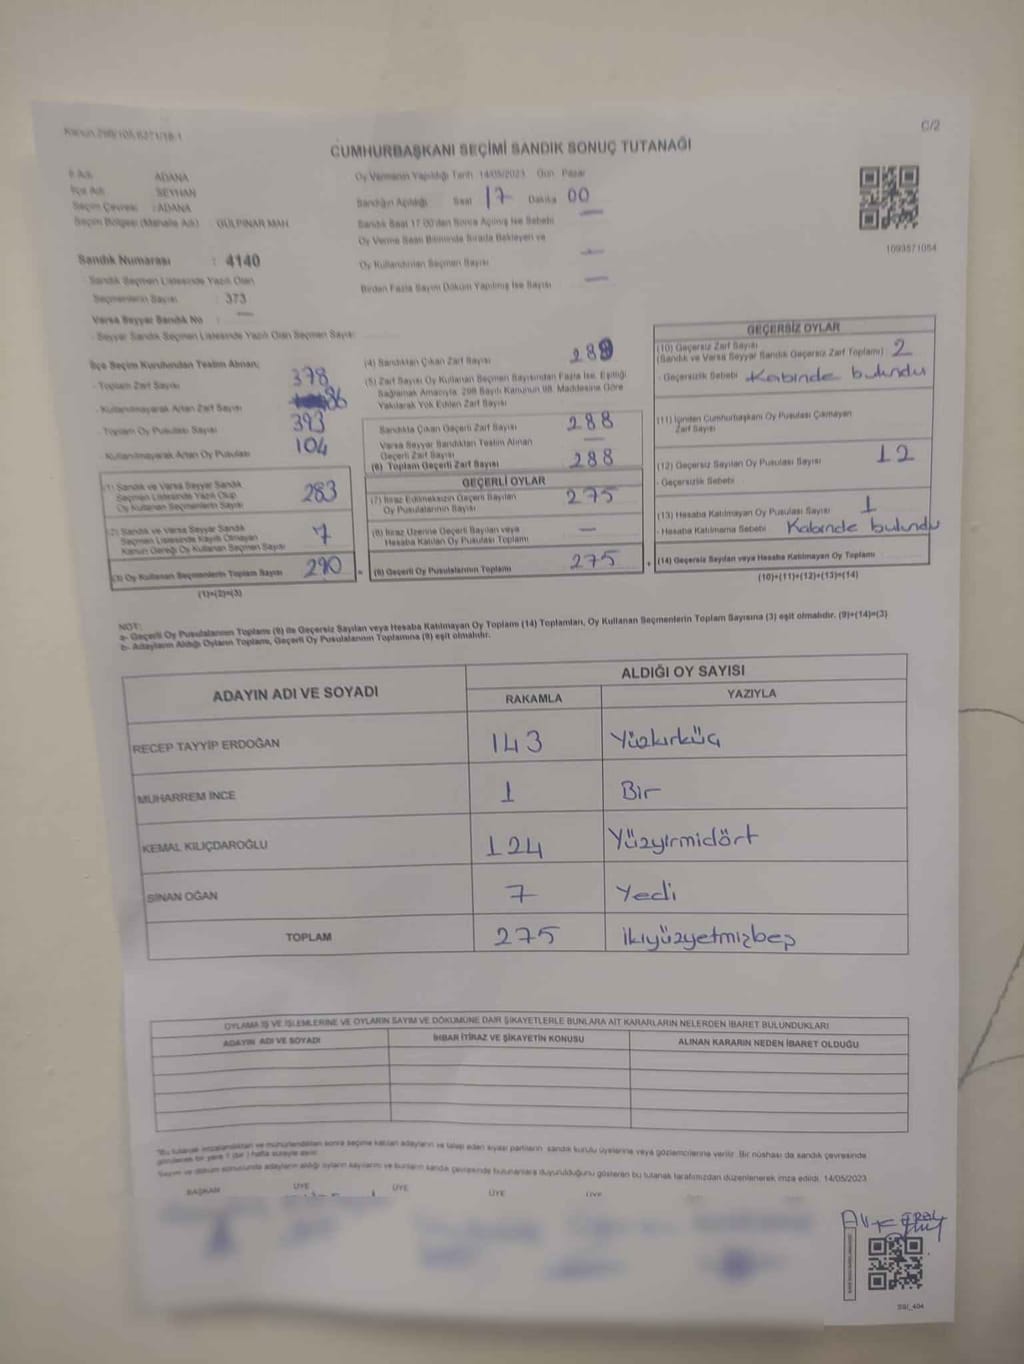 Kanun 298/105
C/2
CUMHURBAŞKANI SEÇİMİ SANDIK SONUÇ TUTANAĞI
İl Adı ADANA
İlçe Adı SEYHAN
Seçim Çevresi : ADANA
Seçim Bölgesi (Mahalle Adı) GÜLPINAR MAH
Sandık Numarası : 4140
Sandık Seçmen Listesinde Yazılı Olan
Seçmenlerin Sayısı : 373
Varsa Seyyar Sandık No : —
- Seyyar Sandık Seçmen Listesinde Yazılı Olan Seçmen Sayısı
Oy Vermenin Yapıldığı Tarih 14/05/2023 Gün Pazar
Sandığın Açıldığı Saat 17 Dakika 00
Sandık Saat 17.00'den Sonra Açılmış İse Sebebi —
Oy Verme Saati Bitiminde Sırada Bekleyen ve
Oy Kullandırılan Seçmen Sayısı —
Birden Fazla Sayım Döküm Yapılmış İse Sayısı —
1093571054
İlçe Seçim Kurulundan Teslim Alınan;
- Toplam Zarf Sayısı 378
- Kullanılmayarak Artan Zarf Sayısı 86
- Toplam Oy Pusulası Sayısı 393
- Kullanılmayarak Artan Oy Pusulası 104
(1) Sandık ve Varsa Seyyar Sandık
Seçmen Listesinde Yazılı Olup
Oy Kullanan Seçmenlerin Sayısı 283
(2) Sandık ve Varsa Seyyar Sandık
Seçmen Listesinde Kayıtlı Olmayan
Kanun Gereği Oy Kullanan Seçmen Sayısı 7
(3) Oy Kullanan Seçmenlerin Toplam Sayısı 290
(1)+(2)=(3)
(4) Sandıktan Çıkan Zarf Sayısı
(5) Zarf Sayısı Oy Kullanan Seçmen Sayısından Fazla İse, Eşitliği
Sağlamak Amacıyla, 298 Sayılı Kanunun 98. Maddesine Göre
Yakılarak Yok Edilen Zarf Sayısı
Sandıkta Çıkan Geçerli Zarf Sayısı 288
Varsa Seyyar Sandıktan Teslim Alınan
Geçerli Zarf Sayısı —
(6) Toplam Geçerli Zarf Sayısı 288
GEÇERLİ OYLAR
(7) İtiraz Edilmeksizin Geçerli Sayılan
Oy Pusulalarının Sayısı 275
(8) İtiraz Üzerine Geçerli Sayılan veya
Hesaba Katılan Oy Pusulası Toplamı —
(9) Geçerli Oy Pusulalarının Toplamı 275
GEÇERSİZ OYLAR
(10) Geçersiz Zarf Sayısı
(Sandık ve Varsa Seyyar Sandık Geçersiz Zarf Toplamı) 2
- Geçersizlik Sebebi Kabinde bulundu
(11) İçinden Cumhurbaşkanı Oy Pusulası Çıkmayan
Zarf Sayısı
(12) Geçersiz Sayılan Oy Pusulası Sayısı 12
- Geçersizlik Sebebi
(13) Hesaba Katılmayan Oy Pusulası Sayısı 1
- Hesaba Katılmama Sebebi Kabinde bulundu
(14) Geçersiz Sayılan veya Hesaba Katılmayan Oy Toplamı
(10)+(11)+(12)+(13)=(14)
NOT:
a- Geçerli Oy Pusulalarının Toplamı (9) ile Geçersiz Sayılan veya Hesaba Katılmayan Oy Toplamı (14) Toplamları, Oy Kullanan Seçmenlerin Toplam Sayısına (3) eşit olmalıdır. (9)+(14)=(3)
b- Adayların Aldığı Oyların Toplamı, Geçerli Oy Pusulalarının Toplamına (9) eşit olmalıdır.
ADAYIN ADI VE SOYADI
ALDIĞI OY SAYISI
RAKAMLA YAZIYLA
RECEP TAYYİP ERDOĞAN 143 Yüzkırküç
MUHARREM İNCE 1 Bir
KEMAL KILIÇDAROĞLU 124 Yüzyirmidört
SİNAN OĞAN 7 Yedi
TOPLAM 275 ikiyüzyetmişbeş
OYLAMA İŞ VE İŞLEMLERİNE VE OYLARIN SAYIM VE DÖKÜMÜNE DAİR ŞİKAYETLERLE BUNLARA AİT KARARLARIN NELERDEN İBARET BULUNDUKLARI
ADAYIN ADI VE SOYADI İHBAR İTİRAZ VE ŞİKAYETİN KONUSU ALINAN KARARIN NEDEN İBARET OLDUĞU
*Bu tutanak imzalandıktan ve mühürlendikten sonra seçime katılan adayların ve talep eden siyasi partilerin sandık kurulu üyelerine veya gözlemcilerine verilir. Bir nüshası da sandık çevresinde
görülecek bir yere 1 (bir) hafta süreyle asılır.
Sayım ve döküm sonucunda adayların aldığı oyların sayılarını ve bunların sandık çevresinde bulunanlara duyurulduğunu gösteren bu tutanak tarafımızdan düzenlenerek imza edildi. 14/05/2023
BAŞKAN ÜYE ÜYE ÜYE ÜYE